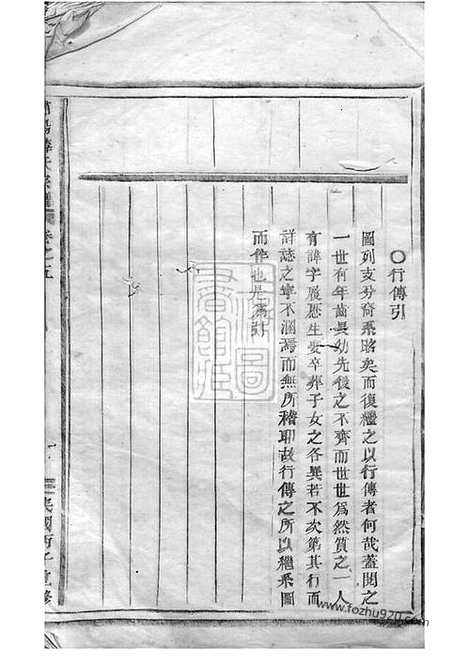 〇行傳引
圖列支分裔系昭矣而復繼之以行傳者何哉蓋閱之
一世有年齒長幼先後之不齊而世世爲然質之一人
有諱字履歷生娶卒葬子女之各異若不次第其行而
詳誌之寧不湮焉而無所稽耶故行傳之所以繼系圖
而作也是爲引
氏宗譜
卷之五
民國丙子重修
www.fozhu920.com